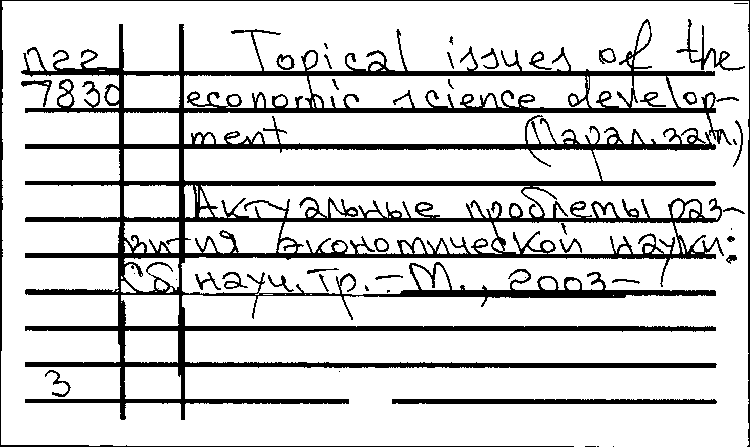 П22 Topical issues of the
7830 economic science develop-
ment (Парал. загл.)
Актуальные проблемы раз-
вития экономической науки:
Сб. науч. тр. – М., 2003 –
3